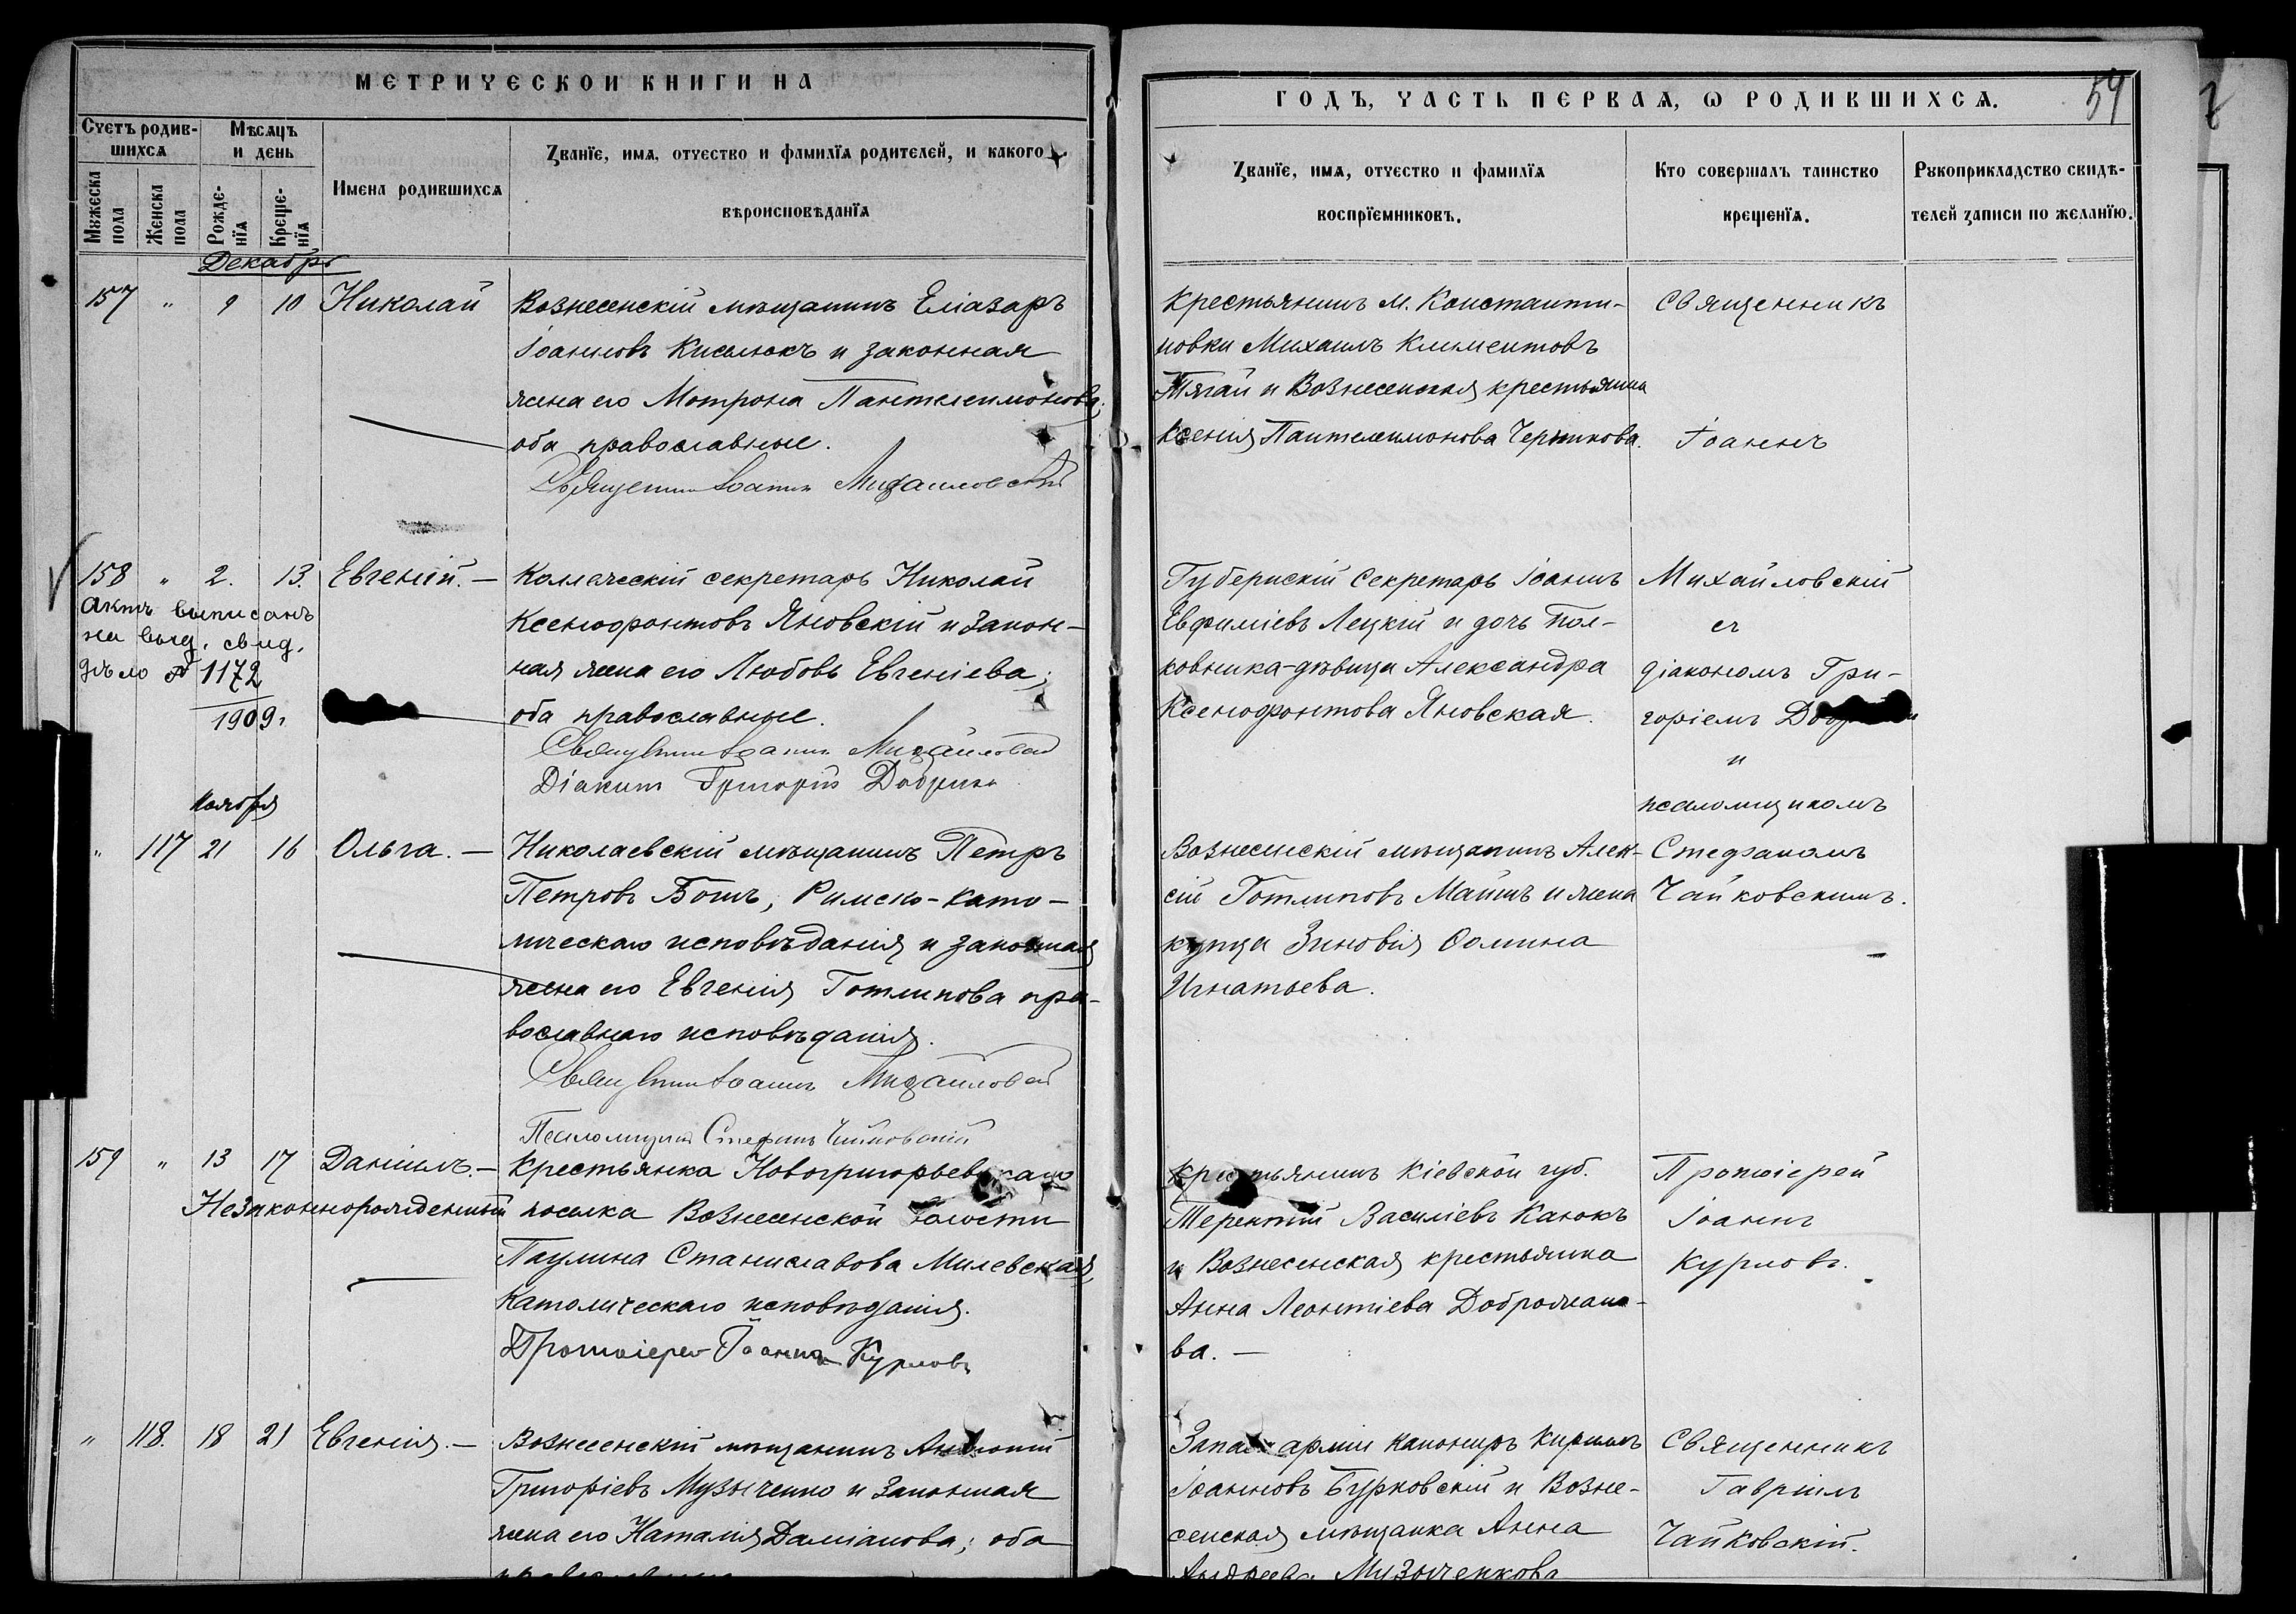 МЕТРИЧЕСКОЙ КНИГИ НА
ГОДЪ, ЧАСТЬ ПЕРВАѦ, Ѡ РОДИВШИХСѦ.
54
Счетъ родив-
шихсѧ
Мѣсѧцъ
и день
Мꙋжеска
пола
Женска
пола
Рожде-
нїѧ
Креще-
нїѧ
Имена родившихсѧ
Званїе, имѧ, отчество и фамилїѧ родителей, и какого
вѣроисповѣданїѧ
Званїе, имѧ, отчество и фамилїѧ
воспрїемниковъ.
Кто совершалъ таинство
крещенїѧ.
Рꙋкоприкладство свидѣ-
телей записи по желанїю.
Декабрь
157 " 9 10 Николай
Вознесенскій мѣщанинъ Еліазаръ
Іоанновъ Кисьлюкъ и законная
жена его Мотрона Пантелеимонова;
оба православные.
Священникъ Іоаннъ Михайловскій
Крестьянинъ м. Константи-
новки Михаилъ Климентовъ
Тягай и Вознесенская крестьянка
Ксенія Пантелеимонова
Священникъ
Іоаннъ
158 " 2. 13. Евгеній. —
Актъ выписанъ
на выд. свид.
дѣло № 1172
1909 г.
Коллежскій секретарь Николай
Ксенофонтовъ Яновскій и закон-
ная жена его Любовь Евгеніева;
оба православные.
Священникъ Іоаннъ Михайловскій
Діаконъ Григорій
Губернскій Секретарь Іоаннъ
Евфиміевъ Лецкій и дочь Пол-
ковника-дѣвица Александра
Ксенофонтова Яновская.
Михайловскій
съ
діакономъ Гри-
горіемъ
и
псаломщикомъ
Ноября
" 117 21 16 Ольга. —
Николаевскій мѣщанинъ Петръ
Петровъ Бошъ, Римско-като-
лическаго исповѣданія и законная
жена его Евгенія Готлипова пра-
вославнаго исповѣданія.
Священникъ Іоаннъ Михайловскій
Псаломщикъ Стефанъ Чайковскій
Вознесенскій мѣщанинъ Алек-
сій Готлиповъ и жена
купца Зиновія Ѳомина
Игнатьева.
Стефаномъ
Чайковскимъ.
159 " 13 17 Даніилъ. —
Незаконнорожденный
Крестьянка Новогригорьевскаго
поселка Вознесенской волости
Паулина Станиславова Милевская,
Католическаго исповѣданія.
Протоіерей Іоаннъ Курловъ
Крестьянинъ Кіевской губ.
Терентій Василіевъ Канюкъ
и Вознесенская крестьянка
Анна Леонтіева Доброжано-
ва. —
Протоіерей
Іоаннъ
Курловъ.
" 118. 18 21 Евгенія. —
Вознесенскій мѣщанинъ
Григоріевъ Музыченко и законная
жена его Наталія Даміанова; оба
православные.
Запаса арміи канониръ Кириллъ
Іоанновъ Бурковскій и Возне-
сенская мѣщанка Анна
Андреева Музыченкова
Священникъ
Гавріилъ
Чайковскій.